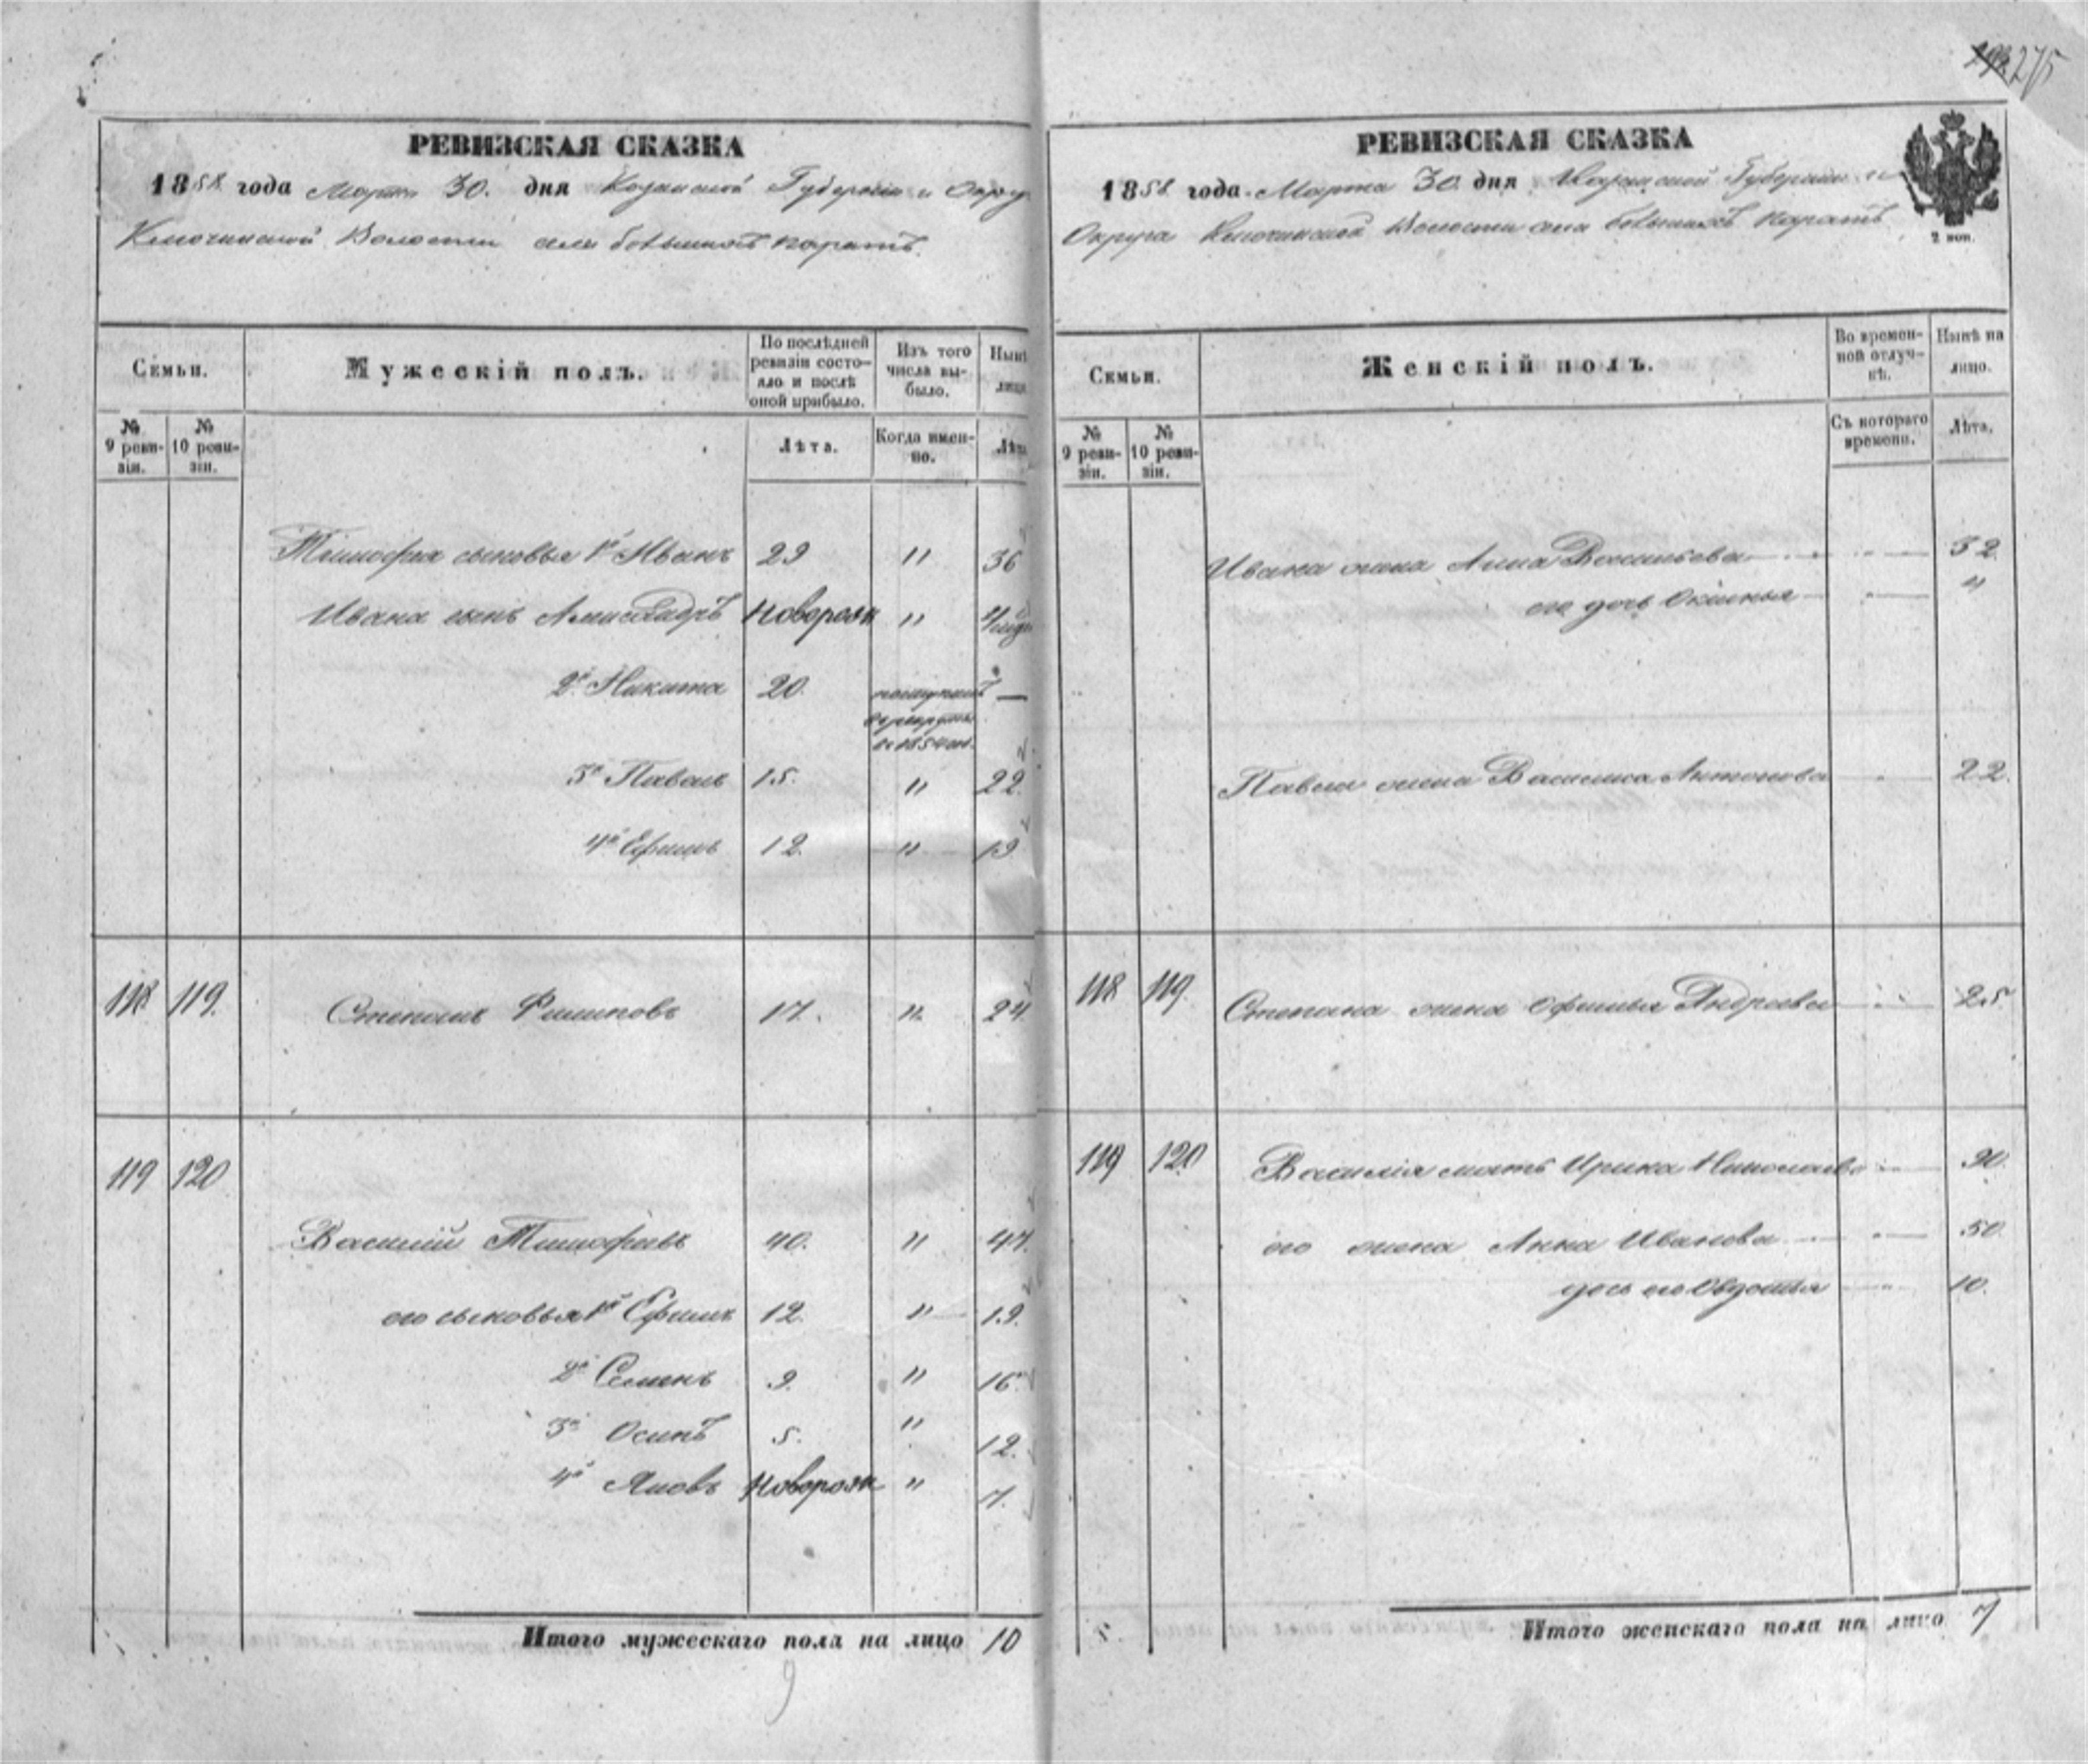 275
РЕВИЗСКАЯ СКАЗКА
1858 года Марта 30. дня Казанской Губернiи и Окру
Ключинской Волости села большихъ каратъ.
Семьи.
Мужескiй полъ.
По послѣдней ревизiи состояло и послѣ оной прибыло.
Изъ того числа выбыло.
Нынѣ лицо
№ 9 ревизiи.
№ 10 ревизiи.
Лѣта.
Когда именно.
Лѣта
Тимофея сыновья 1й Иванъ 29 " 36
Ивана сынъ новорож "
2й Никита 20. поступилъ —
в рекруты
в 1854 г.
3й Павелъ 15. " 22.
4й Ефимъ 12. " 19
118 119. Степанъ Филиповъ 17. " 24.
119 120
Василiй Тимофѣевъ 40. " 47.
его сыновья 1й Ефимъ 12. " 19.
2й Семенъ 9. " 16.
3й Осипъ 5. " 12.
4й Яковъ новорож " 7.
Итого мужескаго пола на лицо 10
9
РЕВИЗСКАЯ СКАЗКА
1858 года Марта 30 дня Казанской Губернiи и
Округа Ключинской Волости села большихъ каратъ
2 коп.
Семьи.
Женскiй полъ.
Во временной отлучкѣ.
Нынѣ на лицо.
№ 9 ревизiи.
№ 10 ревизiи.
Съ котораго времени.
Лѣта.
Ивана жена Анна Васильева " 32.
его дочь Оксинья " "
Павла жена Василиса Антонова " 22.
118 119. Степана жена Офимья Андреева " 25
119 120 Василiя мать Ирина Николаева " 90.
его жена Анна Иванова " 50
дочь его Овдотья " 10.
Итого женскаго пола на лицо 7